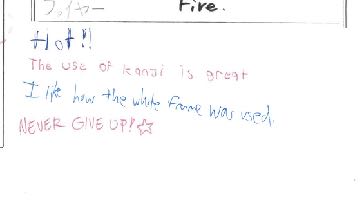 ファイヤー Fire.
Hot!!
The use of kanji is great
I like how the white frame was used.
NEVER GIVE UP!☆